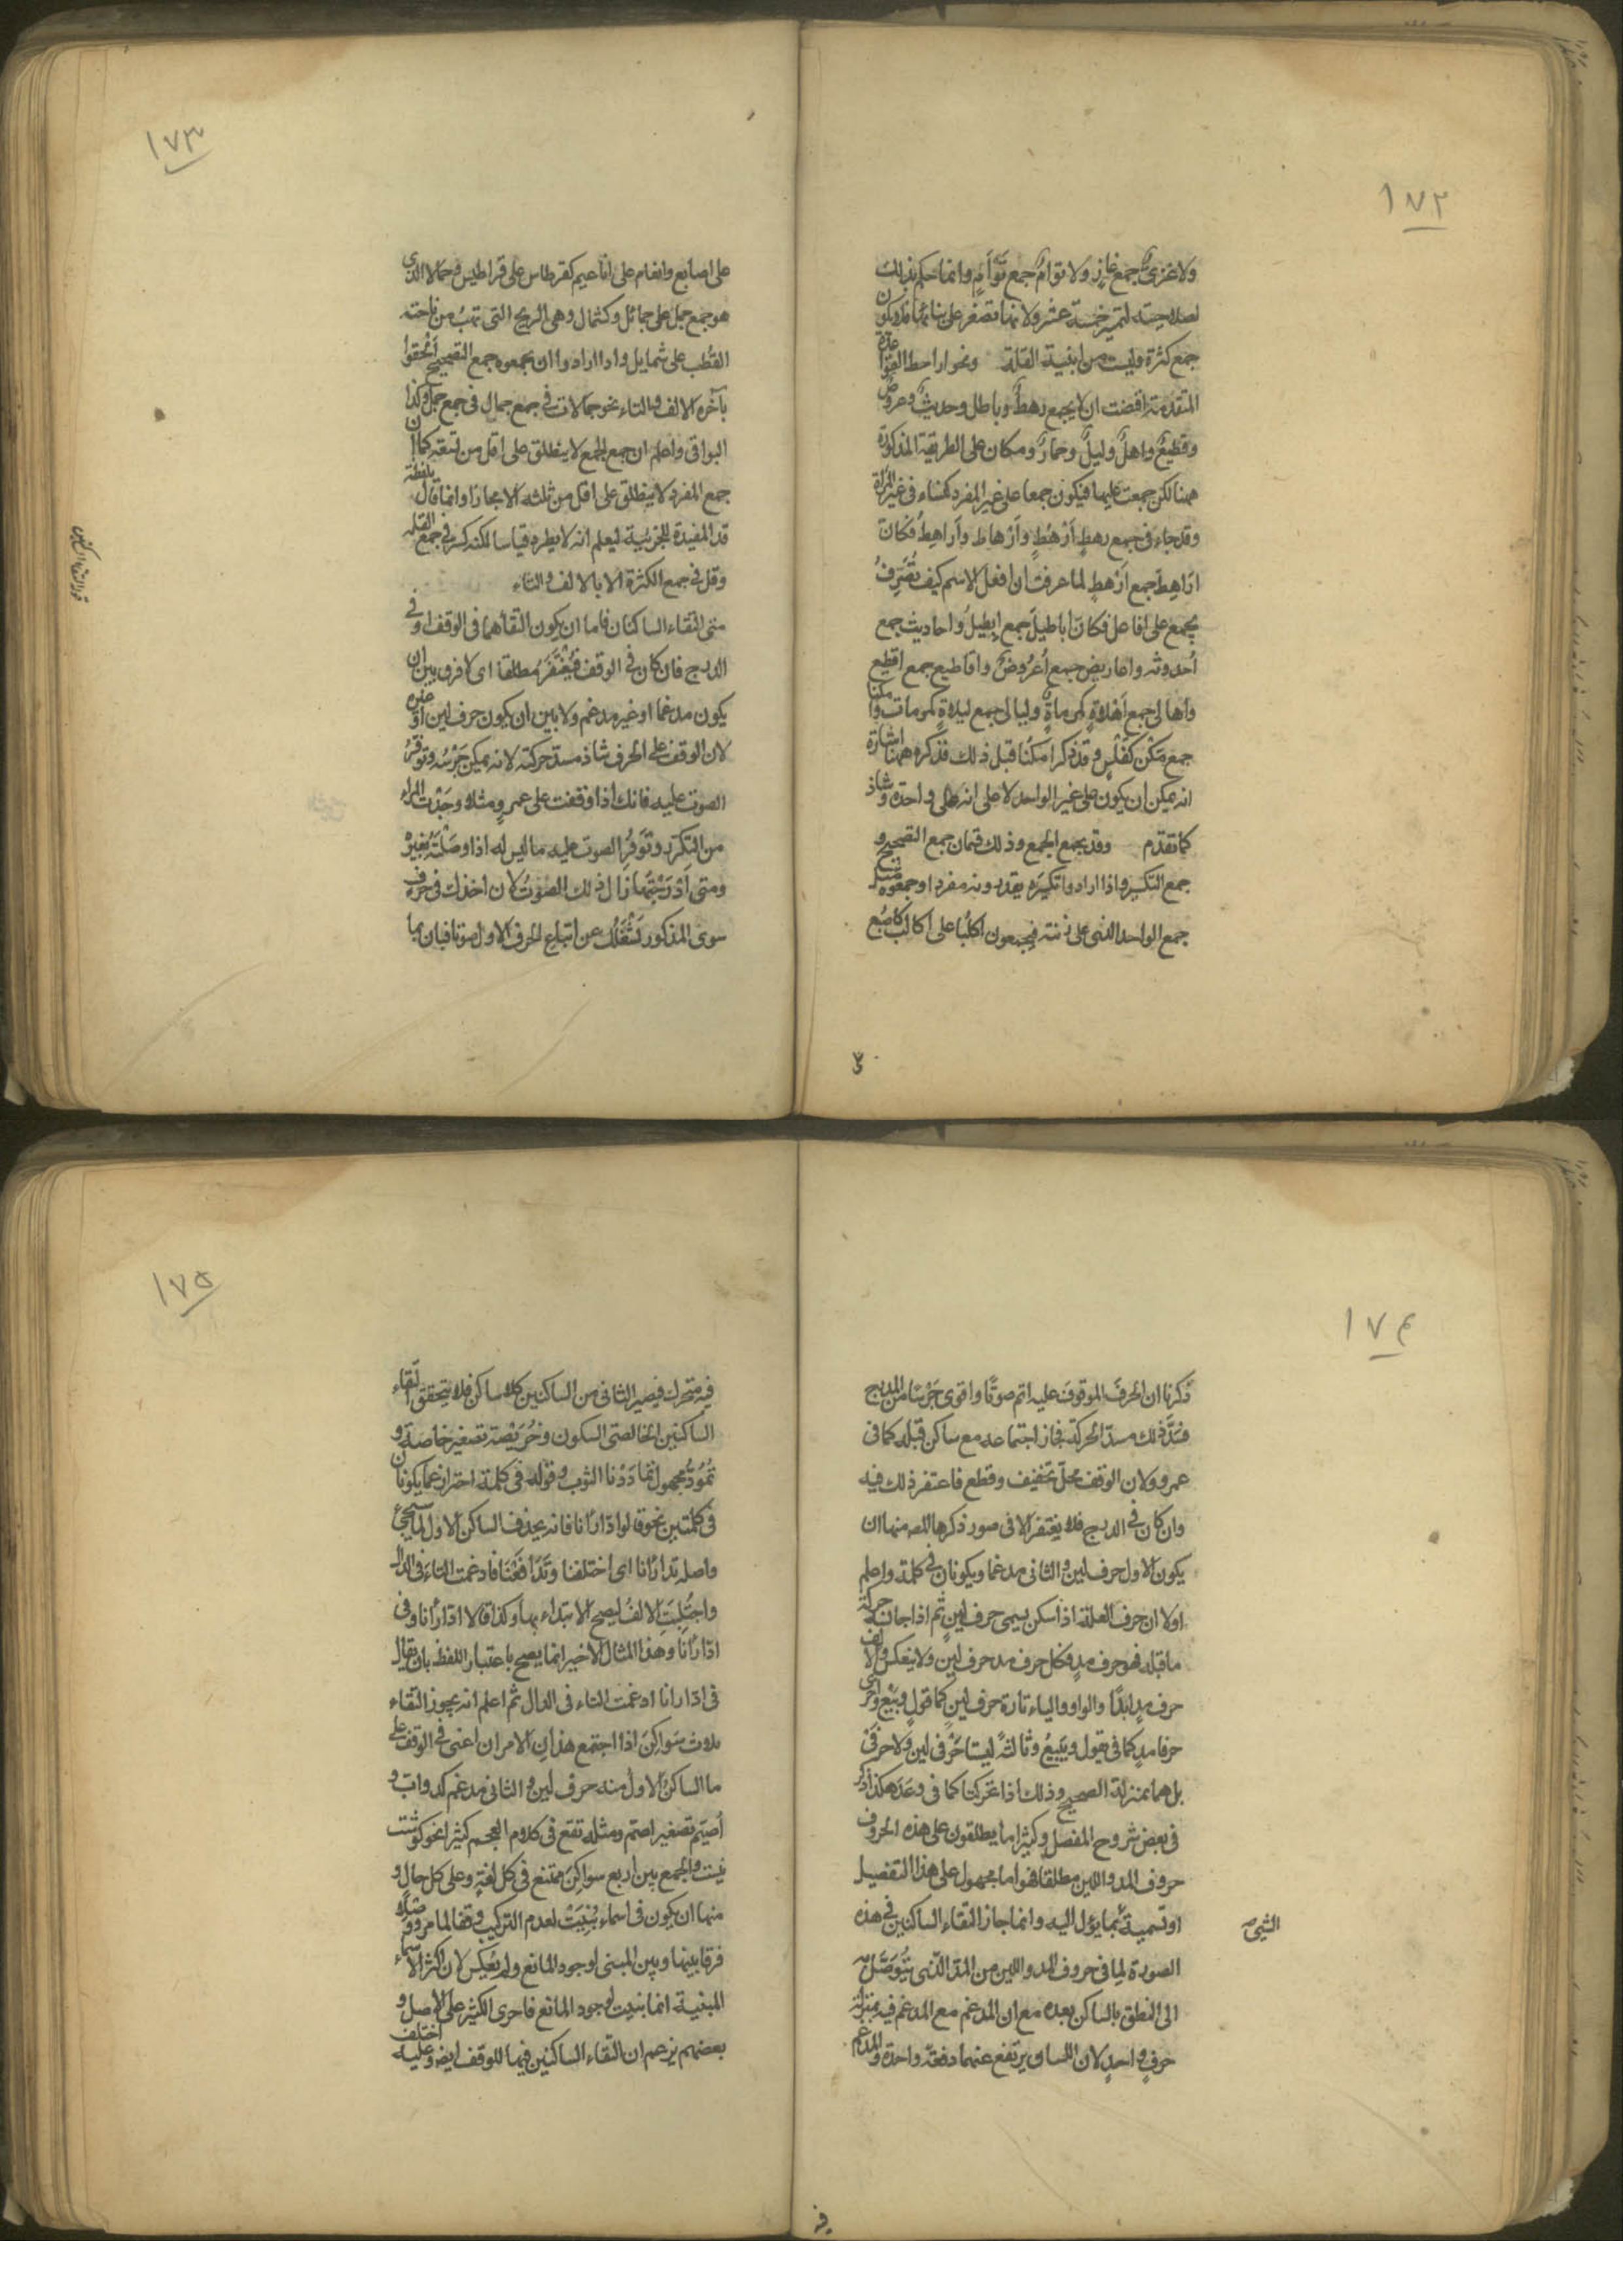 ١٧٢
ولا غزىّ جمع غازٍ ولا تؤام جمع تَوْأَمٍ وانما حكم بذلك
لصلاحيته لتميز خمسة عشر ولانها تصغر على بنائها فلا يكون
جمع كثرة وليست من ابنية القلة ونحو اراهط القواعد
المتقدمة اقتضت ان لا يجمع رهط وباطل وحديث وعروض
وقطيع واهل وليل وحمار ومكان على الطريقة المذكورة
ههنا لكن جمعت عليها فيكون جمعا على غير المفرد كنساء في غير المراة
وقد جاء في جمع رهطٍ أَرْهُطٍ وأَرْهاط وأَراهِطُ فكانَ
اَراهِطَ جمع اَرْهطٍ لما عرفت ان افعل الاسم كيف تُصُرِّفَ
يجمع على افاعل فكان اباطيلَ جمع اِبطيلُ واحاديث جمع
أحدوثه واعاريض جمع أُعْرُوضٍ واقاطيع جمع اقطيع
واهالى جمع اَهلاةٍ كموماةٍ وليالى جمع ليلاةٍ كمومات وامكنا
جمع مَكْنٍ كفَلْسٍ وقد ذكر امكنا قبل ذلك فذكره ههنا اشارة
انه يمكن ان يكون على غير الواحد لا على انه على واحده وشاذ
كما تقدم وقد يجمع الجمع وذلك قسمان جمع التصحيح و
جمع التكسير واذا ارادوا تكسيره يقدرونه مفردا وجمعوه مثل
جمع الواحد الذى على زنته فيجمعون اكلبا على اكالب كاصبع
١٧٣
على اصابع وانعام على اناعيم كقرطاس على قراطيس وجمالا الذى
هو جمع جمل على جمائل وكشمال وهى الريح التى تهب من ناحية
القُطْب على شمايل واذا ارادوا ان يجمعوه جمع التصحيح أَلحقوا
بآخره الالف والتاء نحو جمالات في جمع جمال في جمع جمل وكذا
البواقى واعلم ان جمع الجمع لا ينطلق على اقل من تسعة كما ان
جمع المفرد لا ينطلق على اقل من ثلثه الا مجازا وانما قال بلفظة
قد المفيدة للجزئية ليعلم انه لا يطرد قياسا لكنه كثر في جمع القلة
وقل في جمع الكثرة الا بالالف والتاء
متى التقاء الساكنان فاما ان يكون التقاهما في الوقف او في
الدرج فان كان في الوقف فيُغْتَفَرُ مطلقا اى لا فرق بين ان
يكون مدغما او غير مدغم ولا بين ان يكون حرف لين او غيره
لان الوقف على الحرف شاذ مسد حركته لانه يمكن جَرْسُه وتوفرُ
الصوت عليه فانك اذا وقفت على عمرو مثلا وجَدْت للراء
من التكرّر وتَوَفُرِ الصوت عليه ما ليس له اذا وصَلْتَه بغيره
ومتى اَدْرَجْتَها زال ذلك الصوتُ لان اخذك في حرف
سوى المذكور يَشْغَلُك عن اتباع الحرف الاول صوتا فبان بما
١٧٤
ذكرنا ان الحرفَ الموقوفَ عليه اتم صوتًا واقوى جَرْسًا من المدرج
فسَدَّ ذلك مسدّ الحركة فجاز اجتماعه مع ساكن قبله كما في
عمرو ولان الوقف محلّ تخفيف وقطع فاغتفر ذلك فيه
وان كان في الدرج فلا يغتفر الا في صور ذكرها المص منها ان
يكون الاول حرف لين والثانى مدغما ويكونان في كلمة واعلم
اولا ان حرف العلة اذا سكن يسمى حرف لينٍ ثم اذا جانسه حركة
ما قبله فهو حرف مدٍ فكل حرف مد حرف لين ولا ينعكس والالف
حرف مدٍ ابدًا والواو والياء تارة حرف لين كما قولٍ وبَيْع واخرى
حرفا مدٍ كما في يقول ويَبيعُ وثالثةً ليستا حَرْفى لين ولا حرفى
بل هما بمنزلة الصحيح وذلك اذا تحركتا كما في وعَدَ هكذا ذكر
في بعض شروح المفصل وكثيرا ما يطلقون على هذه الحروف
حروف المد واللين مطلقا فهو اما محمول على هذا التفصيل
او تسمية بما يؤل اليه وانما جاز التقاء الساكنين في هذه
الصورة لِما في حروف المد واللين من المدّ الذى يُتوَصَّل به
الى النطق بالساكن بعده مع ان المدغم مع المدغم فيه بمنزلة
حرفٍ واحدٍ لان اللسان يرتفع عنهما دفعةً واحدة والمدغم
الشئ
١٧٥
فيه متحرك فيصير الثانى من الساكنين كلا ساكن فلا يتحقق التقاء
الساكنين الخالصتى السكون وخُوَيْصَّة تصغير خاصة و
تُمُودّ مجهول تمادَدْنا الثوب وقوله في كلمة احتراز عما يكونان
في كلمتين نحو قالوا ادّارأنا فانه يحذف الساكن الاول لما سيجئ
واصله تدارأنا اى اختلفنا وتَدَافَعْنا فادغمت التاء في الدال
واجتُلِبَتِ الالفُ ليصح الابتداء بها وكذا قالا ادّارأنا وفى
ادّارأنا وهذا المثال الاخير انما يصح باعتبار اللفظ بان يقال
في ادارانا ادغمت التاء في الدال ثم اعلم انه يجوز التقاء
ثلاث سَواكِنَ اذا اجتمع هذان الامران اعنى في الوقف على
ما الساكن الاول منه حرف لين والثانى مدغم كدوابّ و
أُصَيْم تصغير اصمّ ومثله تقع في كلام العجم كثيرا نحو كوشت
نيست والجمع بين اربع سواكِنَ ممتنع في كل لغةٍ وعلى كل حالٍ و
منها ان يكون في اسماء بُنِيَتْ لعدم التركيب وقفا لما مر ووصلا
فرقا بينها وبين المبنى لوجود المانع ولم يُعكس لان اكثر الاسماء
المبنية انما بنيت لوجود المانع فاجرى الكثير على الاصل و
بعضهم يزعم ان التقاء الساكنين فيها للوقف ايضا وعليه اختلف